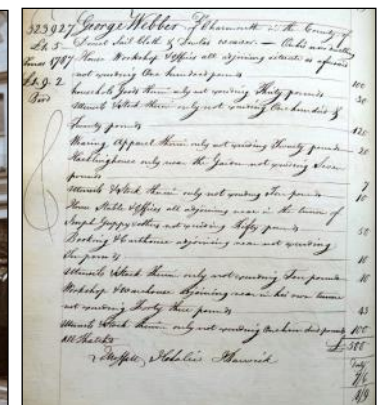 523927 George Webber of Charmouth in the County of
£1.5 — Dorset Sail Cloth & weaver — On his now dwelling
1787 House Workshop & Offices all adjoining situate as aforesaid
£1.9.2 not exceeding One hundred pounds 100
Household Goods therein only not exceeding Thirty pounds 30
Utensils & Stock therein only not exceeding One hundred &
Twenty pounds 120
Wearing Apparel therein only not exceeding Twenty pounds 20
only near the not exceeding Seven
pounds 7
Utensils & Stock therein only not exceeding Ten pounds 10
House Stable & Offices all adjoining near in the tenure of
Joseph Guppy & others not exceeding Fifty pounds 50
& Warehouse adjoining near not exceeding
Ten pounds 10
Utensils & Stock therein only not exceeding Ten pounds 10
Workshop & Warehouse adjoining near in his own tenure
not exceeding Forty three pounds 43
Utensils & Stock therein only not exceeding One hundred pounds 100
All Thatched £500
Warwick Duty
7/6